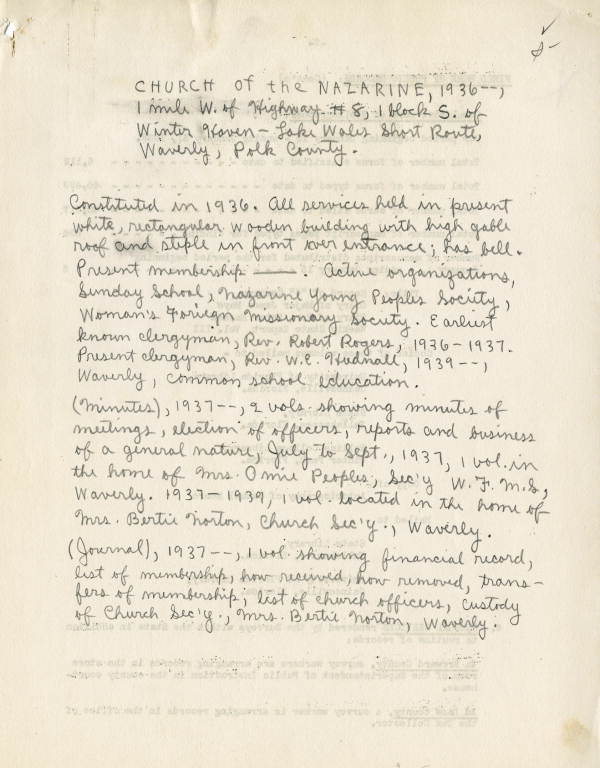 CHURCH of the NAZARINE, 1936--,
1 mile W. of Highway # 8, 1 block S. of
Winter Haven - Lake Wales Short Route,
Waverly, Polk County.
Constituted in 1936. All services held in present
white, rectangular wooden building with high gable
roof and stiple in front over entrance; has bell.
Present membership ———. Active organizations,
Sunday School, Nazarine Young Peoples Society,
Woman's Foriegn Missionary Society. Earliest
known clergyman, Rev. Robert Rogers, 1936-1937.
Present clergyman, Rev. W.E. Hudnall, 1939--,
Waverly, common school education.
(Minutes), 1937--, 2 vols. showing minutes of
meetings, election of officers, reports and business
of a general nature, July to Sept., 1937, 1 vol. in
the home of Mrs. Omie Peoples, Sec'y W.F.M.S,
Waverly. 1937-1939, 1 vol. located in the home of
Mrs. Bertie Norton, Church Sec'y., Waverly.
(Journal), 1937--, 1 vol. showing financial record,
list of membership, how received, how removed, trans-
fers of membership; list of church officers, custody
of Church Sec'y., Mrs. Bertie Norton, Waverly.